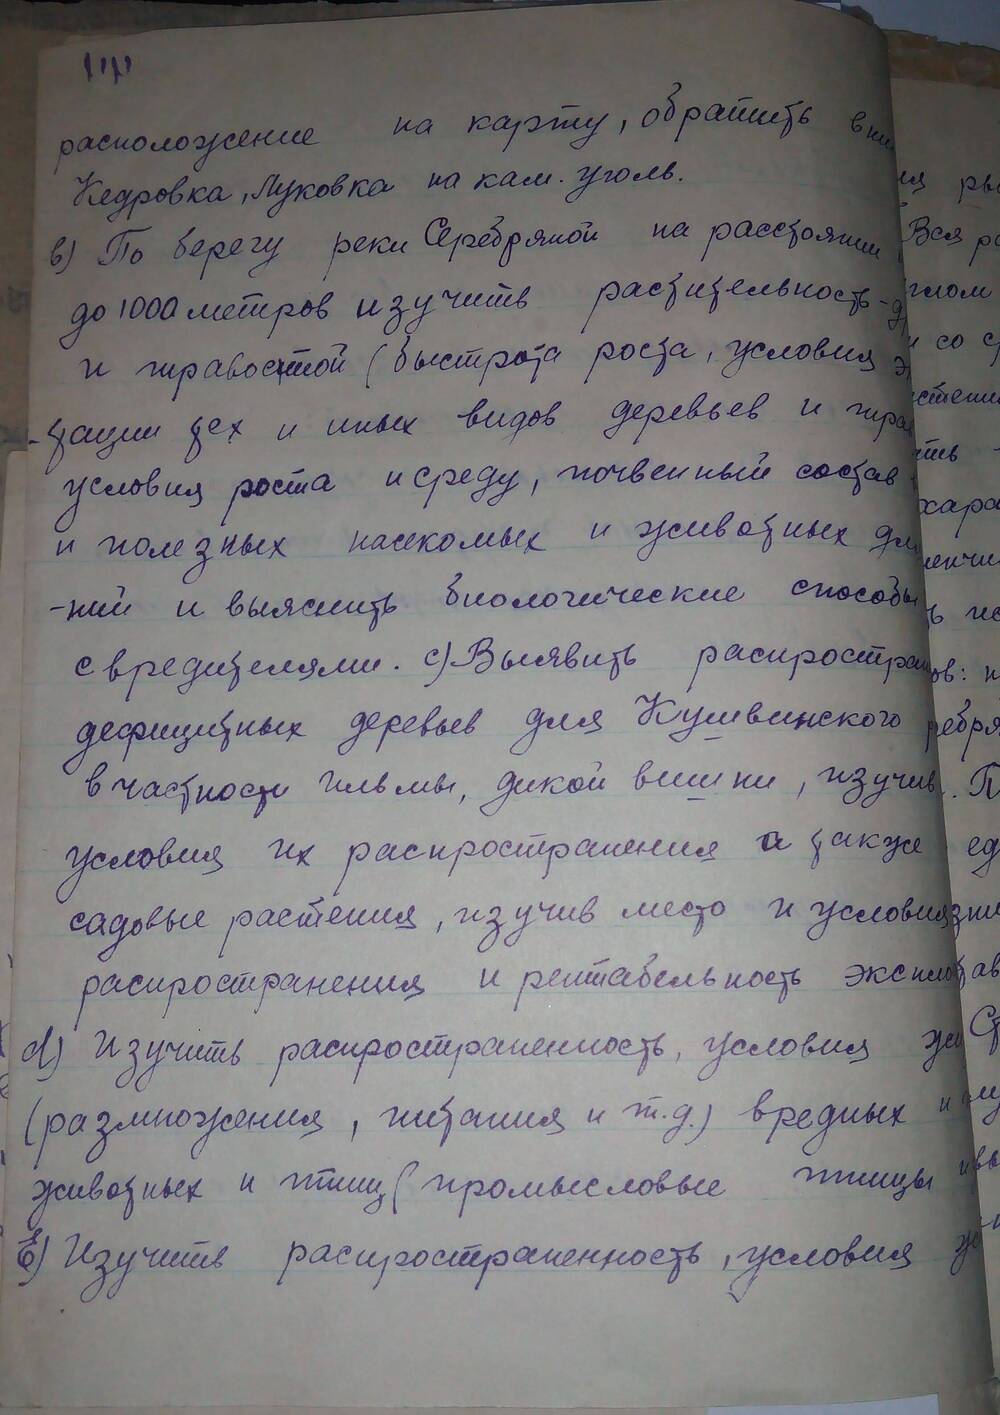 расположение на карту, обратить вни
Кедровка, Луковка на кам. уголь.
в) По берегу реки Серебряной на расстоянии
до 1000 метров изучить растительность - д
и травостой (быстрота роста, условия э
-тации тех и иных видов деревьев и трав
условия роста и среду, почвенный состав
и полезных насекомых и животных для
-ний и выяснить биологические способы
с вредителями. с) Выявить распростран
дефицитных деревьев для Кушвинского
в частности ильмы, дикой вишни, изучив
условия их распространения а также
садовые растения, изучив место и условия
распространения и рентабельность эксплоа
d) Изучить распространенность, условия жи
(размножения, питания и т.д.) вредных и
животных и птиц (промысловые птицы
Е) Изучить распространенность, условия
ия ры
Вся ра
глом
и со с
стени
ить -
хара
ленчи
ь ис
ов: н
ребря
. П
ед
зни
тав
Ст